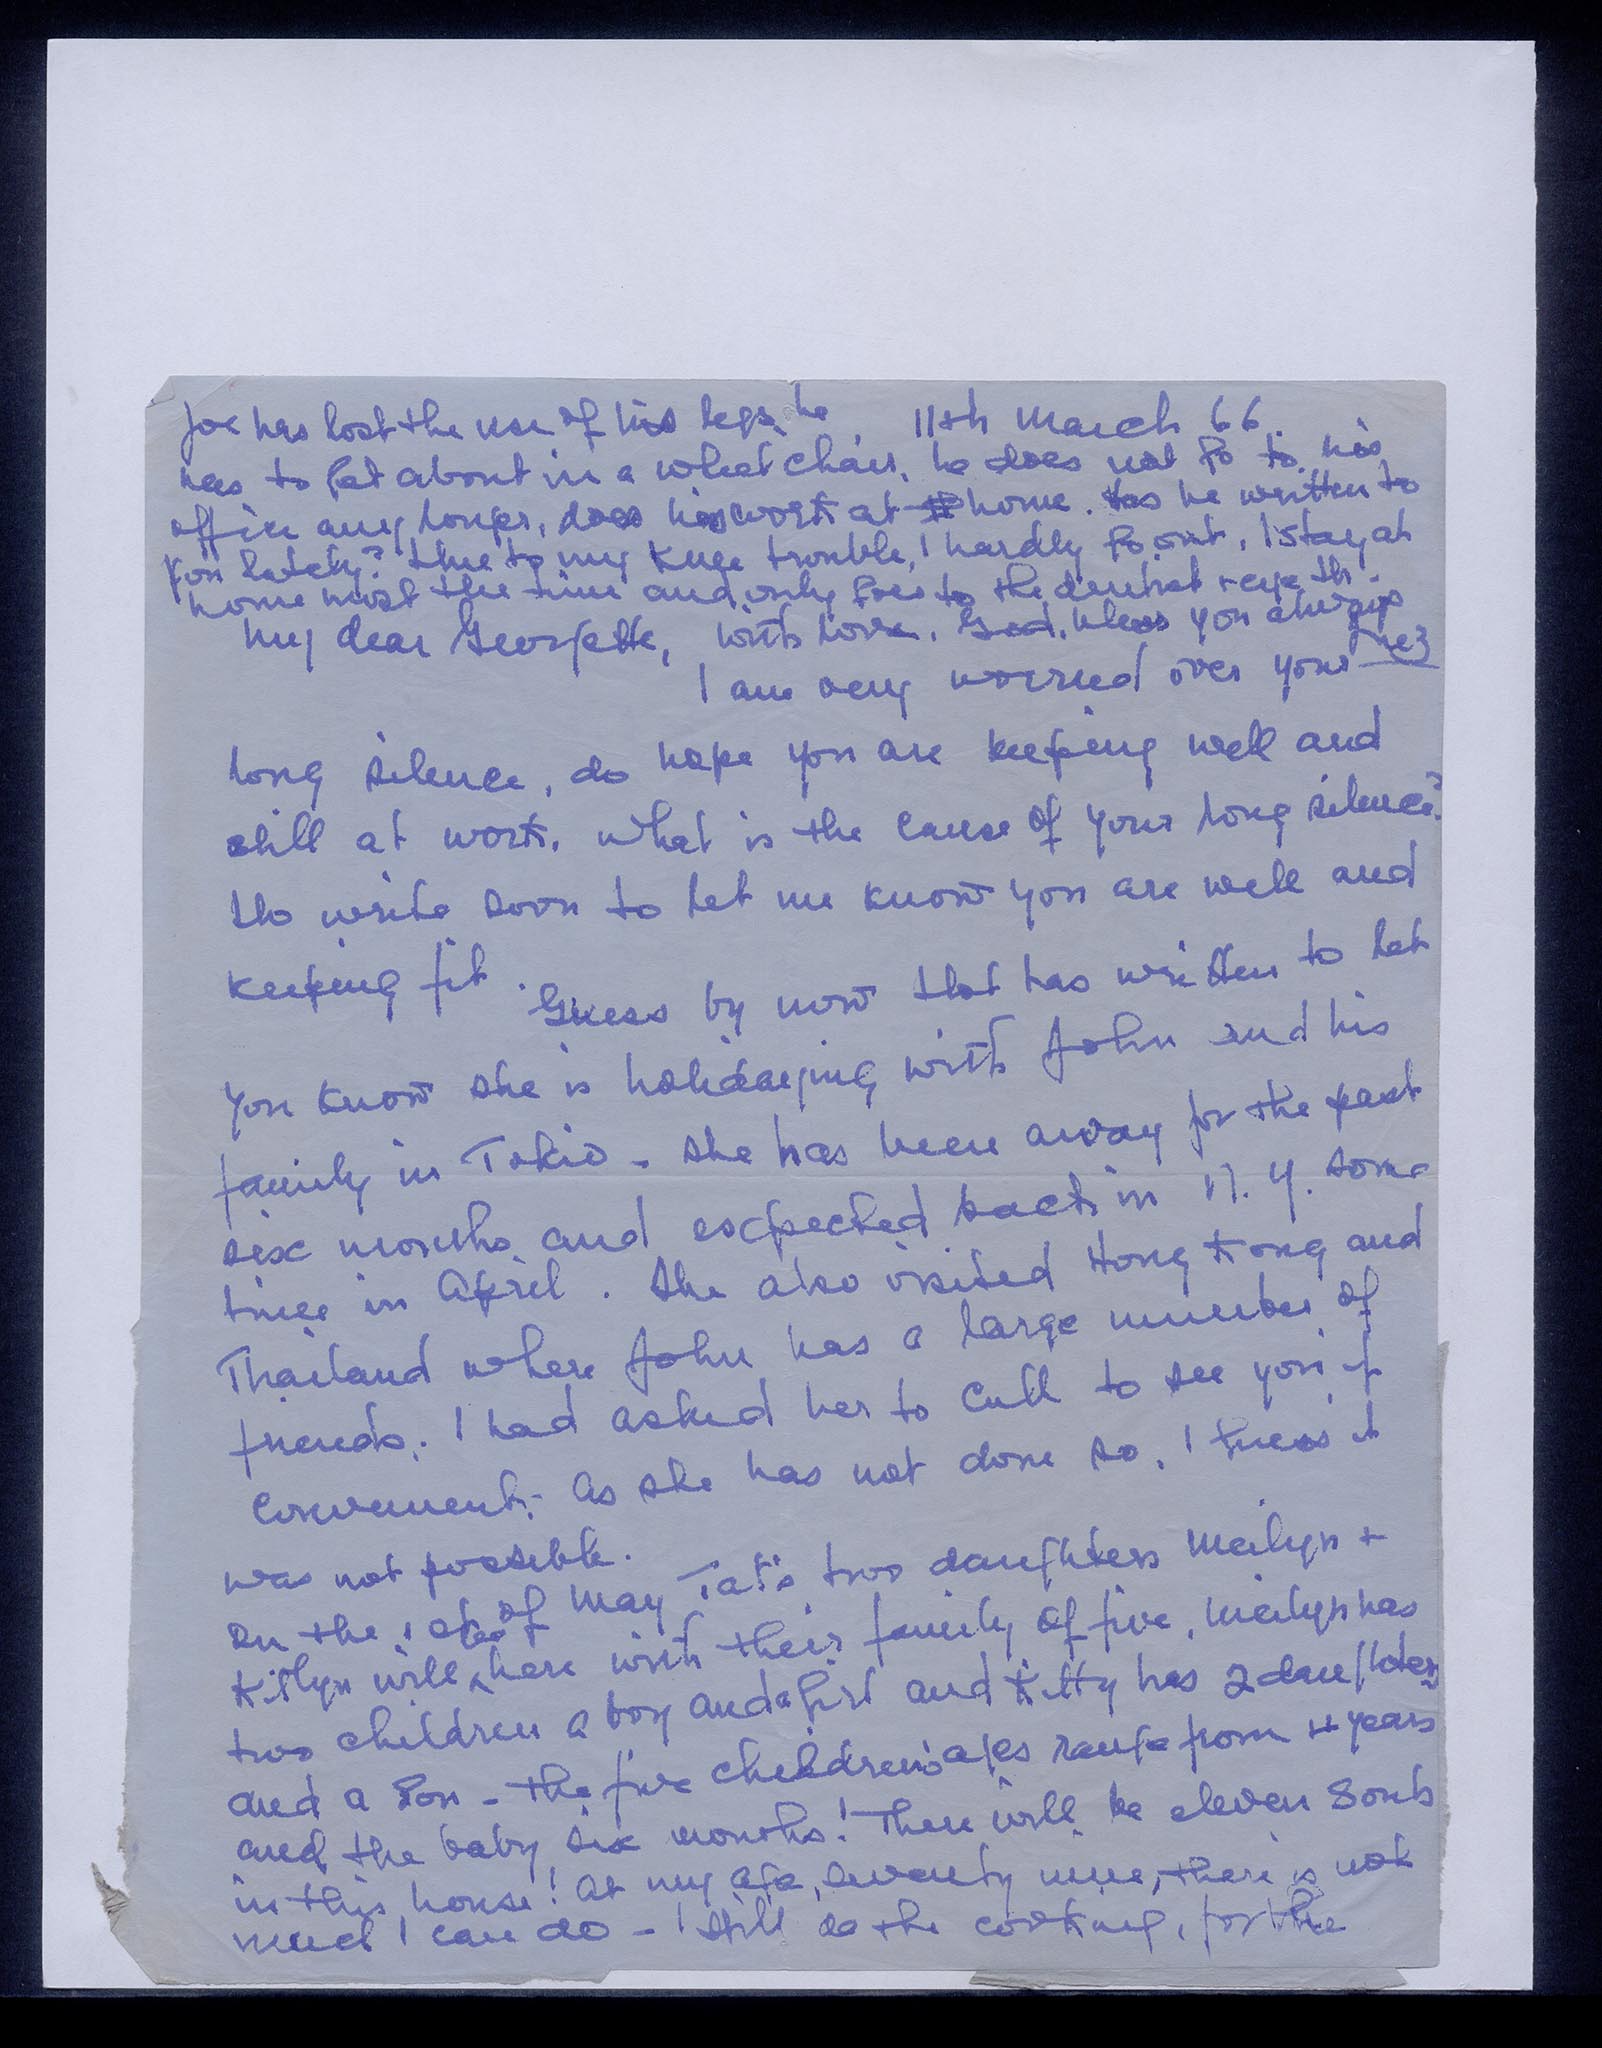 Joe has lost the use of his legs, he 11th March 66.
has to get about in a wheel chair, he does not go to his
office any longer, does his work at home. Has he written to
you lately? Due to my knee trouble, I hardly go out, I stay at
home most the time and only goes to the dentist + eye
With love. God bless you always
My dear Georgette,
I am very worried over your
long silence, do hope you are keeping well and
still at work. What is the cause of your long silence?
Do write soon to let me know you are well and
keeping fit. Guess by now that has written to let
you know she is holidaying with John and his
family in Tokio - she has been away for the past
six months and expected back in N.Y. some
time in April. She also visited Hong Kong and
Thailand where John has a large number of
friends. I had asked her to call to see you if
convenient. As she has not done so, I guess it
was not possible.
On the of May Tat's two daughters Meilyn +
Kitlyn will be here with their family of five, Meilyn has
two children a boy and a girl and Kitty has 2 daughters
and a son - the five children's ages range from 4 years
and the baby six months! There will be eleven souls
in this house! At my age, seventy nine, there is not
much I can do - I still do the cooking, for the